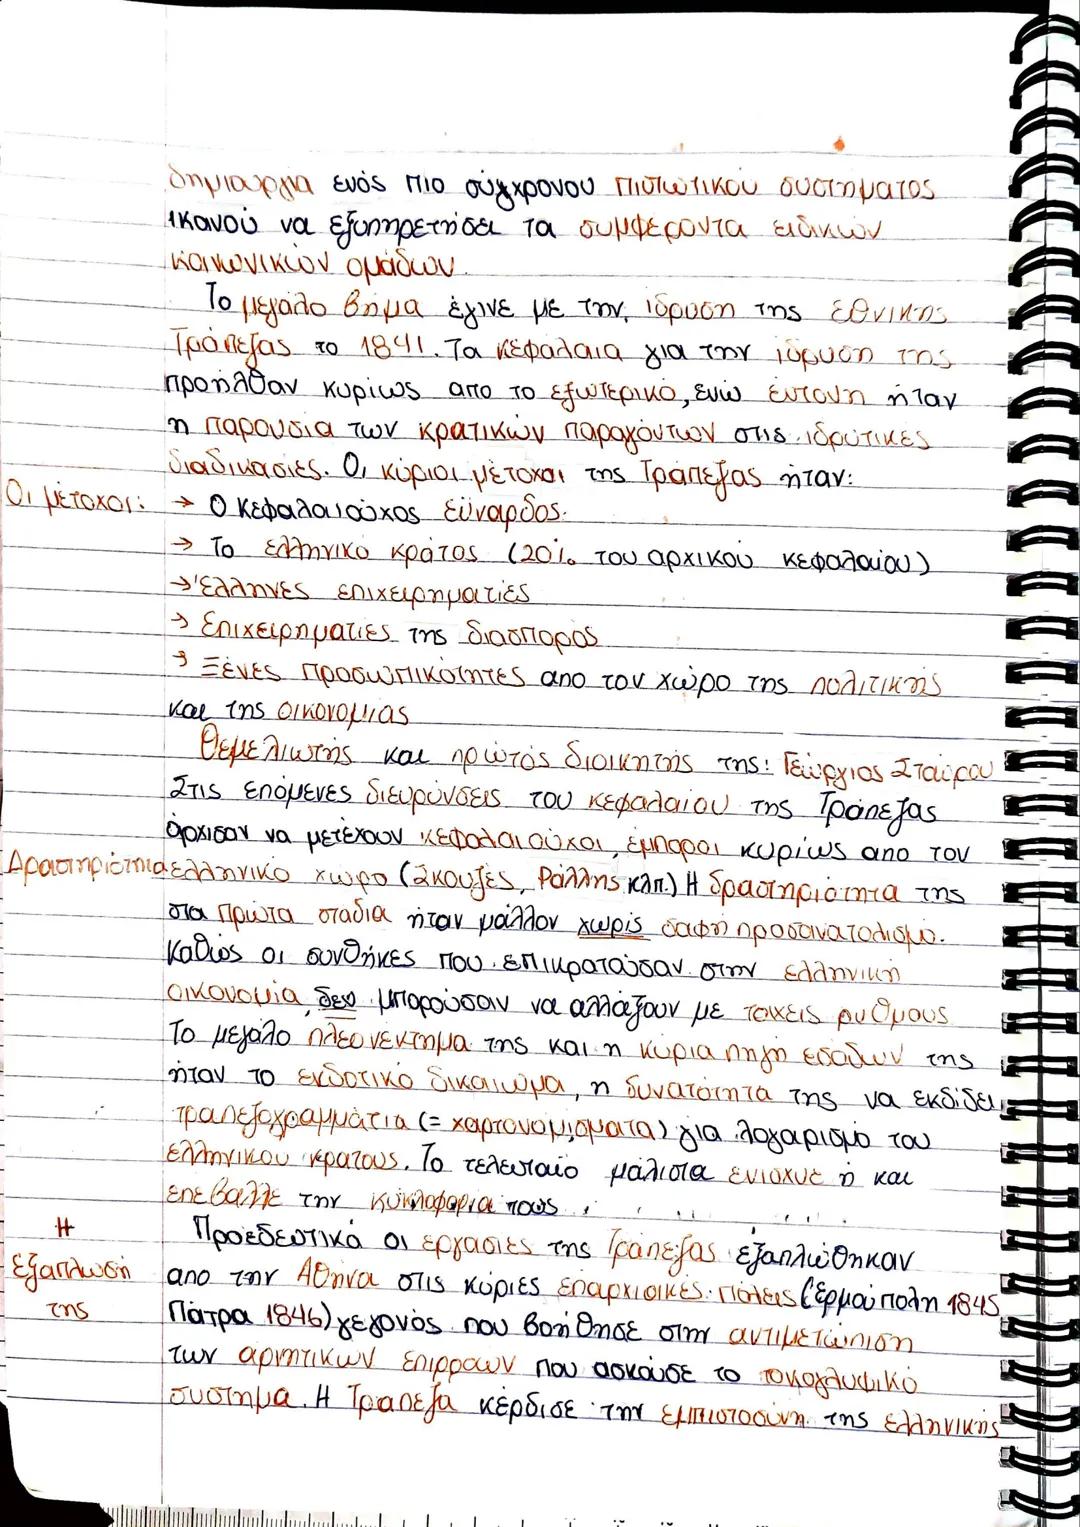 δημιουργία ενός πιο σύγχρονου πιστωτικού συστήματος
ικανού να εξυπηρετήσει τα συμφέροντα ειδικών
κοινωνικών ομάδων.
Το μεγάλο βήμα έγινε με την ίδρυση της Εθνικής
Τράπεζας το 1841. Τα κεφάλαια για την ίδρυση της
προήλθαν κυρίως απο το εξωτερικό, ενώ έντονη ήταν
η παρουσία των κρατικών παραγόντων στις ιδρυτικές
διαδικασίες. Οι κύριοι μέτοχοι της Τράπεζας ήταν:
Οι μέτοχοι: → Ο κεφαλαιούχος Εϋνάρδος.
→ Το ελληνικό κράτος (20% του αρχικού κεφαλαίου)
→ Έλληνες επιχειρηματίες
→ Επιχειρηματίες της διασποράς
→ Ξένες προσωπικότητες απο τον χώρο της πολιτικής
και της οικονομίας
Θεμελιωτής και πρώτος διοικητής της: Γεώργιος Σταύρου
Στις επόμενες διευρύνσεις του κεφαλαίου της Τράπεζας
άρχισαν να μετέχουν κεφαλαιούχοι, έμποροι κυρίως απο τον
Δραστηριότητα ελληνικό χώρο (Σκουζές, Ράλλης κλπ.) Η δραστηριότητα της
στα πρώτα στάδια ήταν μάλλον χωρίς σαφή προσανατολισμό.
Καθώς οι συνθήκες που επικρατούσαν στην ελληνική
οικονομία, δεν μπορούσαν να αλλάξουν με ταχείς ρυθμούς
Το μεγάλο πλεονέκτημα της και η κύρια πηγή εσόδων της
ήταν το εκδοτικό δικαίωμα, η δυνατότητα της να εκδίδει
τραπεζογραμμάτια (= χαρτονομίσματα) για λογαριασμό του
ελληνικού κράτους. Το τελευταίο μάλιστα ενίσχυε ή και
επέβαλλε την κυκλοφορία τους.
Η Προοδευτικά οι εργασίες της Τράπεζας εξαπλώθηκαν
εξάπλωσή απο την Αθήνα στις κύριες επαρχιακές πόλεις (Ερμούπολη 1845
της Πάτρα 1846) γεγονός που βοήθησε στην αντιμετώπιση
των αρνητικών επιρροών που ασκούσε το τοκογλυφικό
σύστημα. Η Τράπεζα κέρδισε την εμπιστοσύνη της ελληνικής